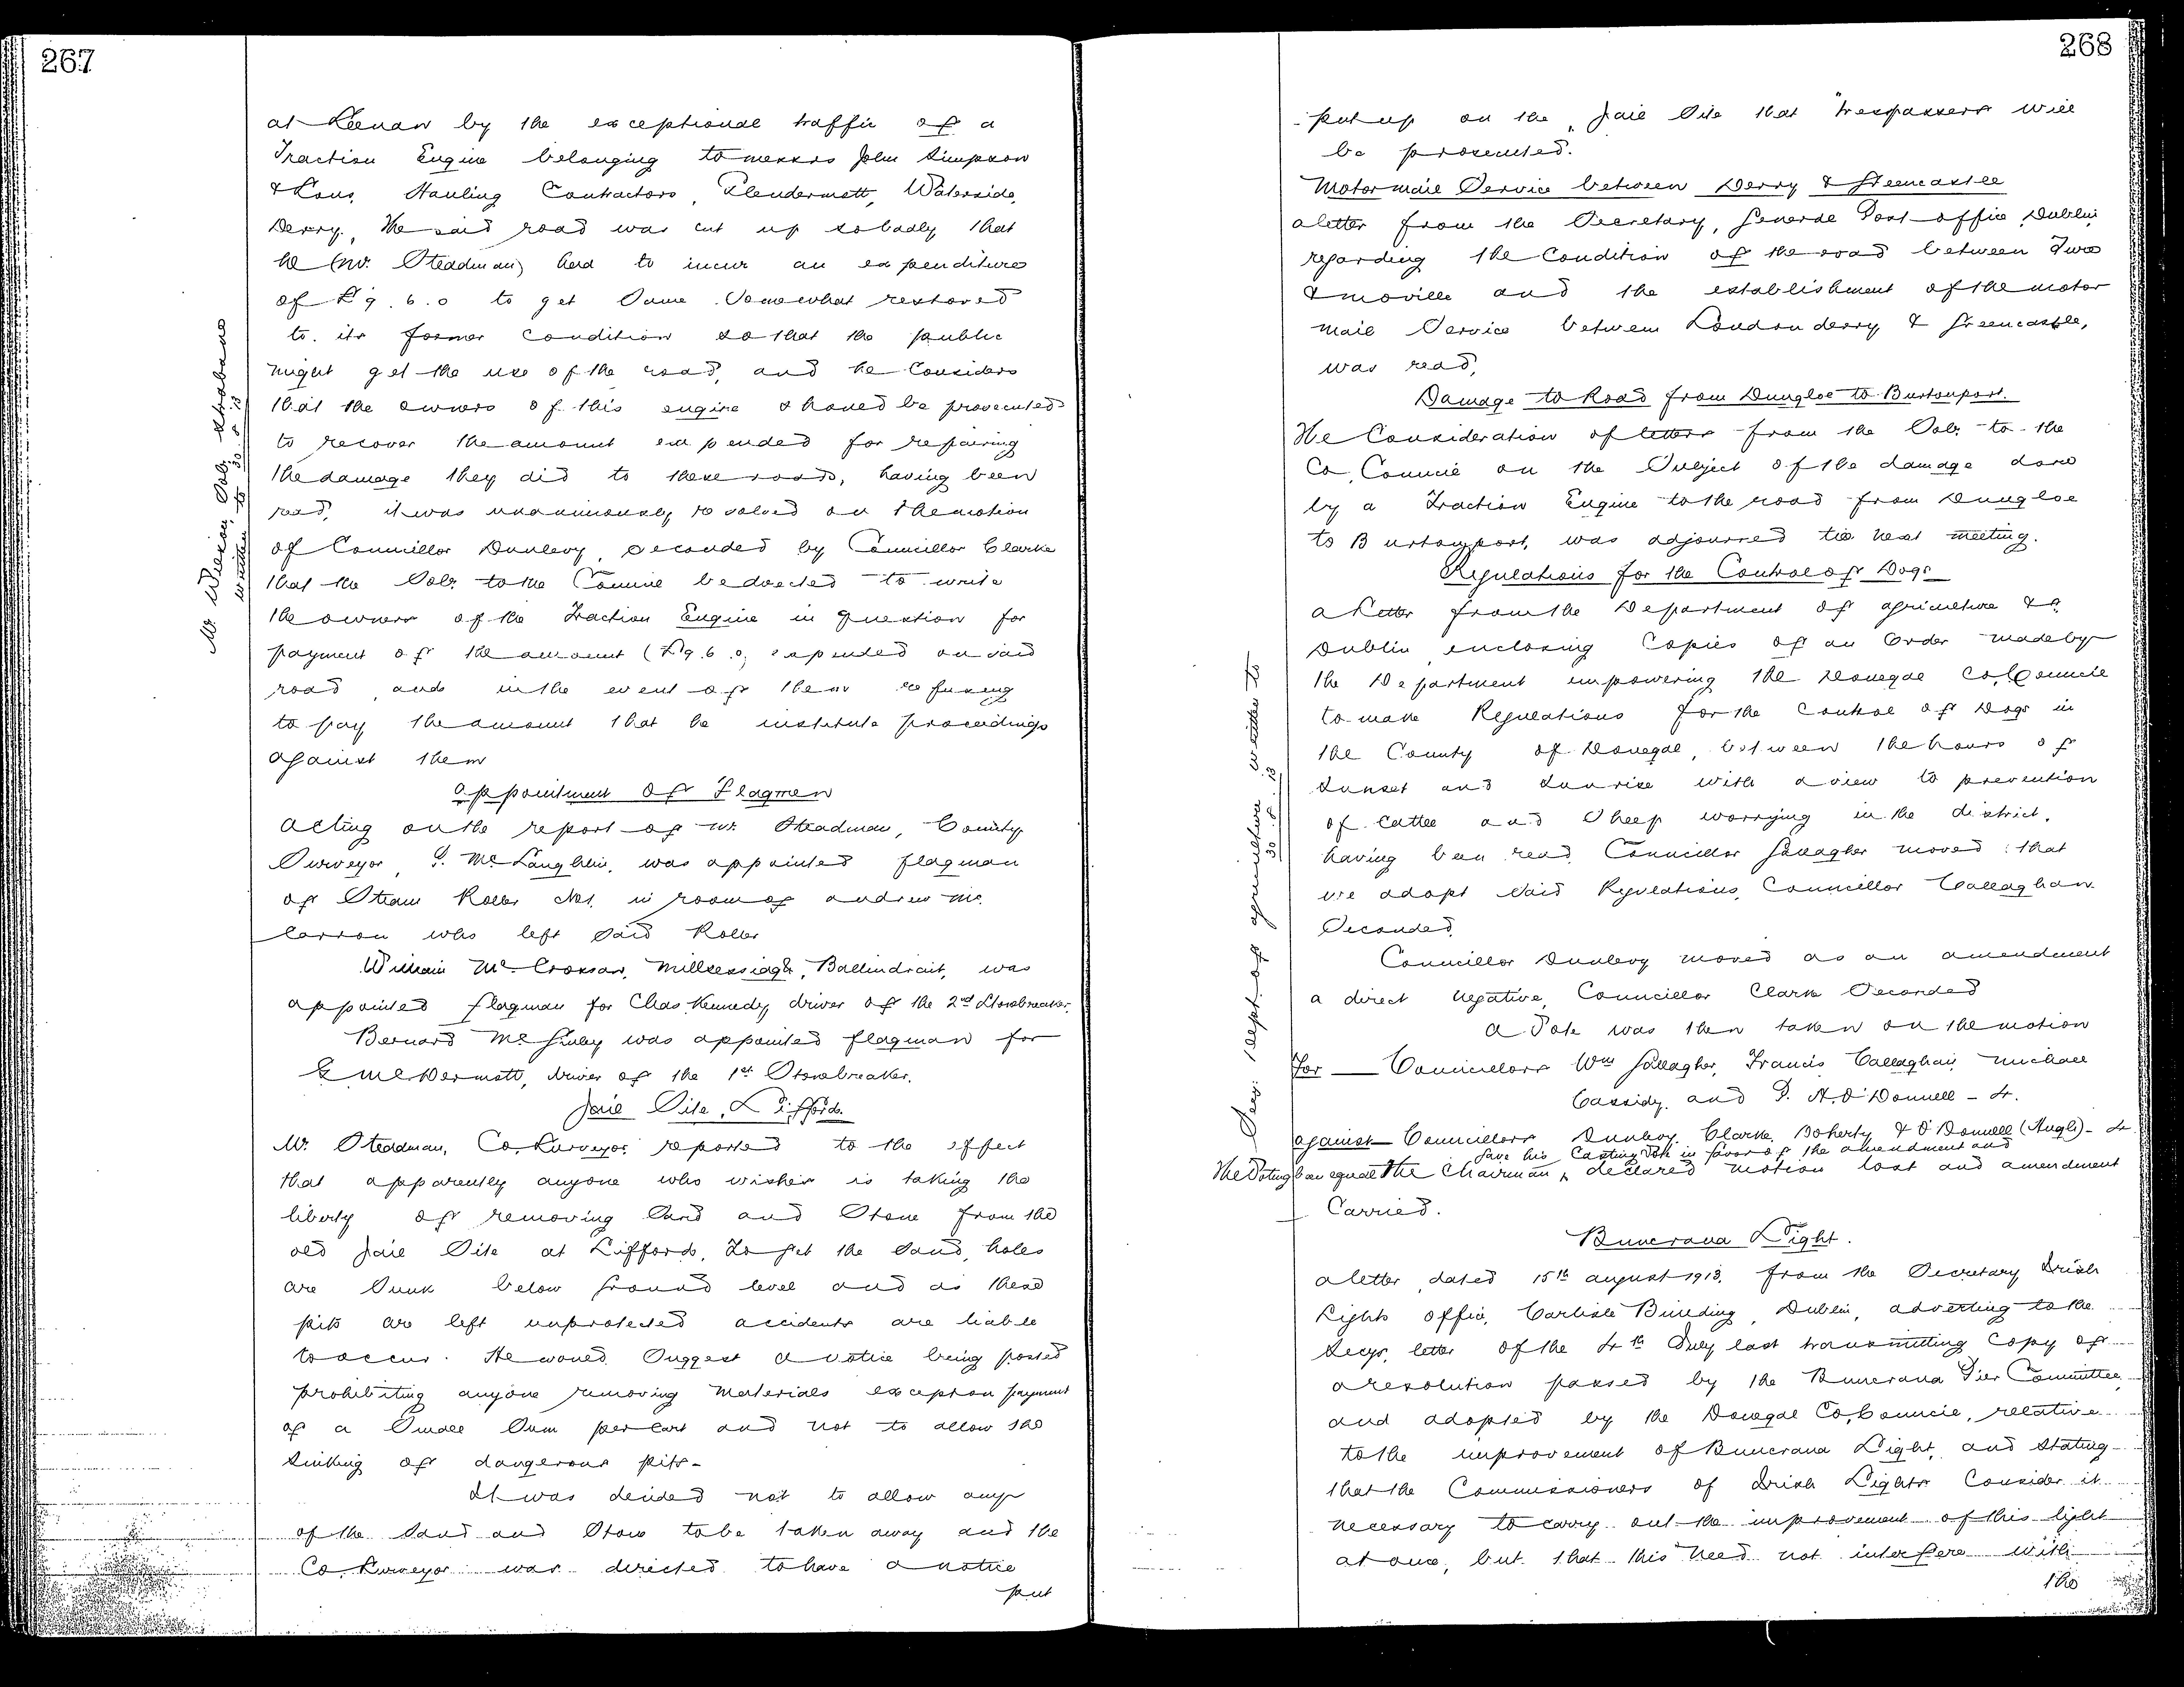 267
at Leenan by the exceptional traffic of a
Traction Engine belonging to messrs John Simpson
& Sons, Hauling Contractors, Glendermott, Waterside,
Derry. The said road was cut up so badly that
he (Mr. Steadman) had to incur an expenditure
of £9. 6. 0 to get same somewhat restored
to its former condition so that the public
might get the use of the road, and he considers
that the owners of this engine should be prosecuted
to recover the amount expended for repairing
the damage they did to these roads, having been
read, it was unanimously resolved on the motion
of Councillor Dunlevy, seconded by Councillor Clarke
that the Solr. to the Council be directed to write
the owners of the Traction Engine in question for
payment of the amount (£9. 6. 0) expended on said
road, and in the event of their refusing
to pay the amount that he institute proceedings
against them
Mr Wilson, Solr. Strabane
written to 30. 8. 13
Appointment of Flagmen
Acting on the report of Mr. Steadman, County
Surveyor, P. McLaughlin, was appointed flagman
of Steam Roller No 1. in room of Andrew Mc
Carron who left said Roller
William McCrossan, Millsessiagh, Ballindrait, was
appointed flagman for Chas Kennedy, driver of the 2nd Stonebreaker.
Bernard McGinley was appointed flagman for
E McDermott, driver of the 1st Stonebreaker.
Jail Site, Lifford.
Mr. Steadman, Co. Surveyor, reported to the effect
that apparently anyone who wishes is taking the
liberty of removing Sand and Stone from the
old Jail Site at Lifford. To get the sand, holes
are sunk below ground level and as these
pits are left unprotected accidents are liable
to occur. He would suggest a notice being posted
prohibiting anyone removing materials except on payment
of a small sum per cart and not to allow the
sinking of dangerous pits-
It was decided not to allow any
of the Sand and Stone to be taken away and the
Co. Surveyor was directed to have a notice
put
268
put up on the Jail Site that "trespassers will
be prosecuted.
Motor mail Service between Derry & Greencastle
A letter from the Secretary, General Post-office, Dublin,
regarding the Condition of the road between Quigley's Point
& Moville and the establishment of the motor
mail Service between Londonderry & Greencastle,
was read,
Damage to Road from Dungloe to Burtonport.
The Consideration of letters from the Solr. to the
Co. Council on the subject of the damage done
by a Traction Engine to the road from Dungloe
to Burtonport, was adjourned till next meeting.
Regulations for the Control of Dogs
A letter from the Department of Agriculture &c
Dublin, enclosing Copies of an Order made by
the Department empowering the Donegal Co. Council
to make Regulations for the control of Dogs in
the County of Donegal, between the hours of
sunset and sunrise with a view to prevention
of cattle and sheep worrying in the district,
having been read, Councillor Gallagher moved: that
we adopt said Regulations, Councillor Callaghan
Seconded.
Secy. Dept. of Agriculture written to
30. 8. 13
Councillor Dunlevy moved as an amendment
a direct negative, Councillor Clarke Seconded
A Vote was then taken on the motion
For — Councillors Wm Gallagher, Francis Callaghan, Michael
Cassidy, and P. A. O'Donnell - 4.
Against- Councillors Dunlevy, Clarke, Doherty & O'Donnell (Hugh) - 4
gave his Casting Vote in favor of the amendment and
The Voting been equal The Chairman ^ declared motion lost and amendment
Carried.
Buncrana Light.
A letter, dated 15th August 1913, from the Secretary, Irish
Lights Office, Carlisle Building, Dublin, adverting to the
Secys. letter of the 4th July last transmitting copy of
a resolution passed by the Buncrana Pier Committee,
and adopted by the Donegal Co. Council, relative
to the improvement of Buncrana Light, and stating
that the Commissioners of Irish Lights Consider it
necessary to carry out the improvement of this light
at once, but that this need not interfere with
the